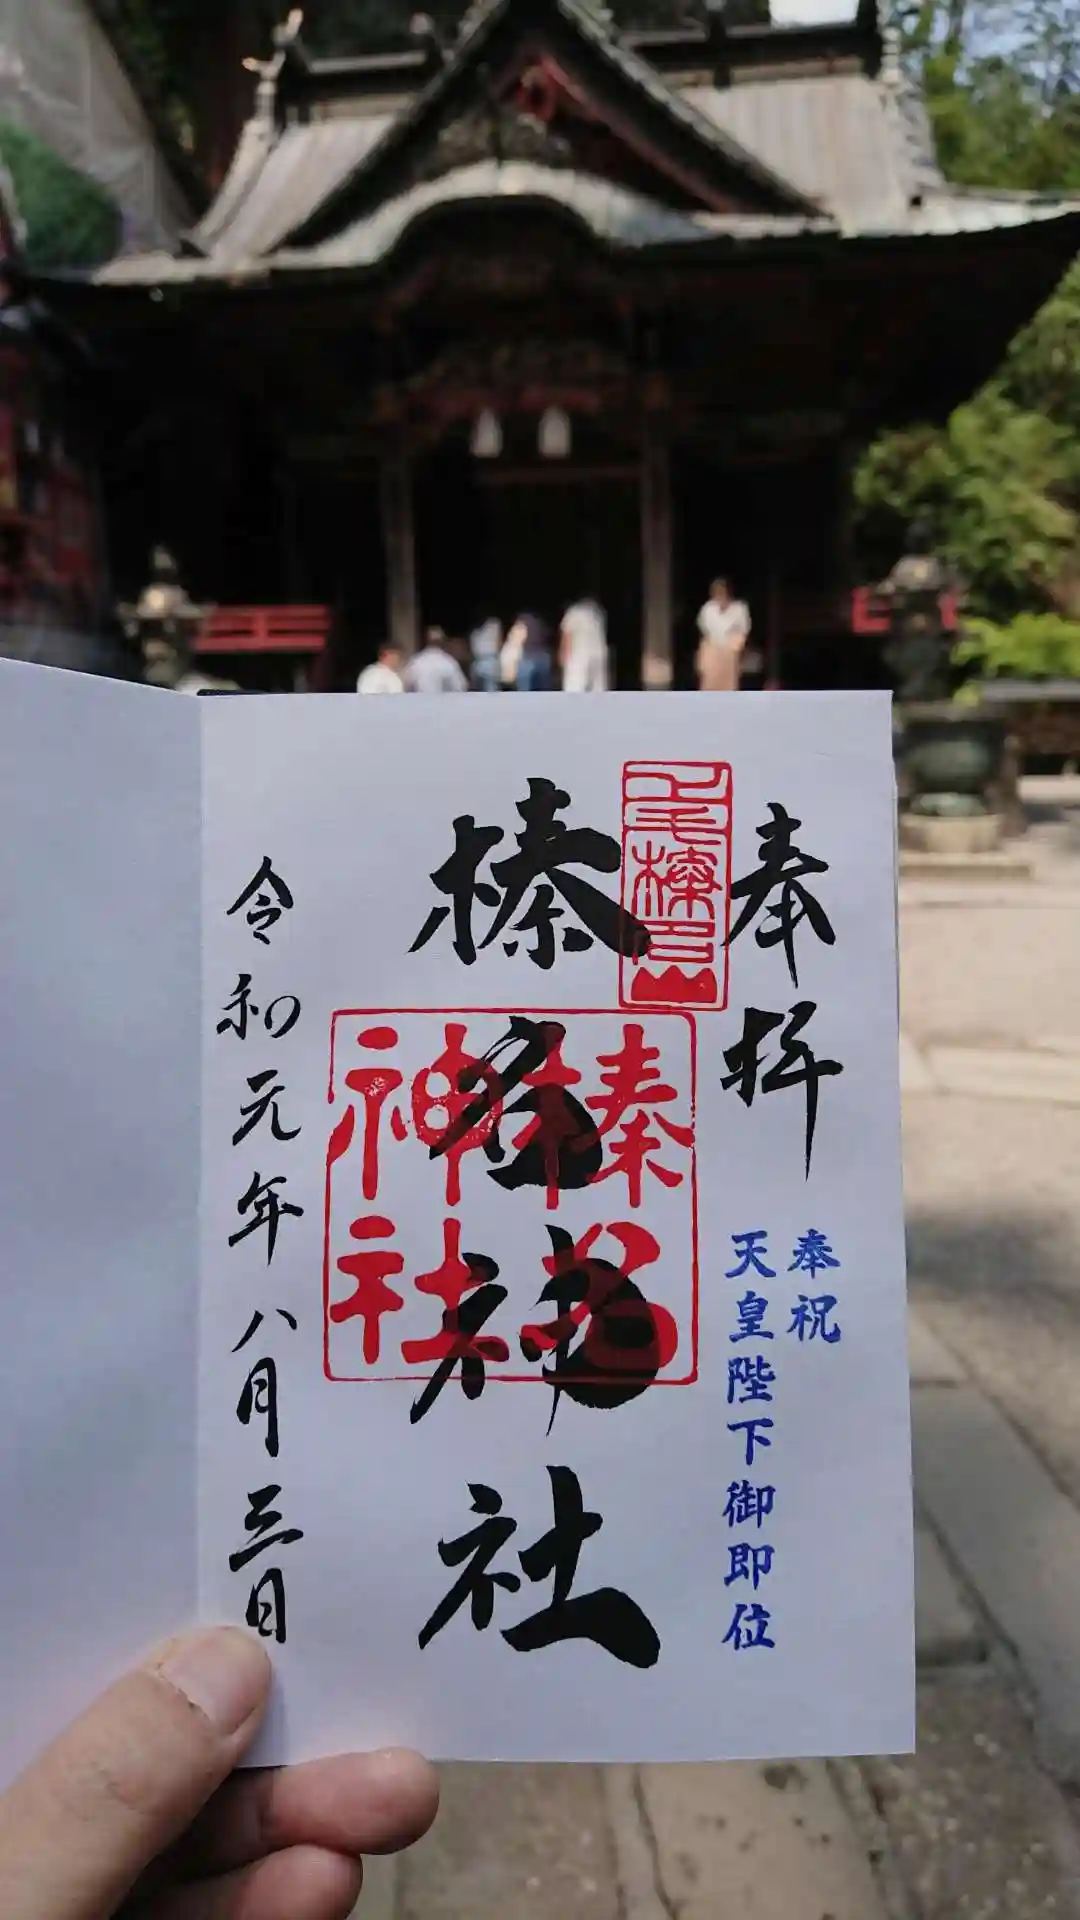 奉拝
奉祝
天皇陛下御即位
榛名神社
上毛榛名山
榛名神社
令和元年八月三日